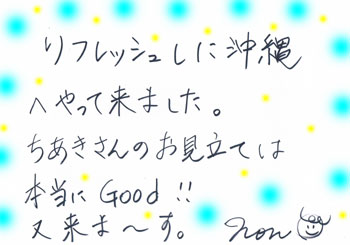 リフレッシュしに沖縄
へやって来ました。
ちあきさんのお見立ては
本当にGood!!
又来ま〜す。 non